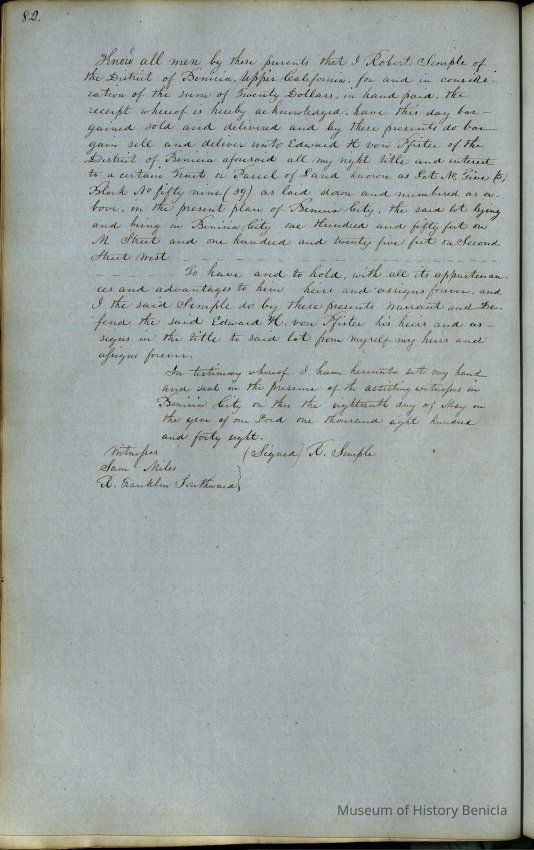 82.
Know all men by these presents that I Robert Semple of
the District of Benicia, Upper California, for and in conside-
ration of the sum of Twenty Dollars, in hand paid, the
receipt whereof is hereby acknowledged, have this day bar-
gained sold and delivered and by these presents do bar-
gain sell and deliver unto Edward H. von Pfister of the
District of Benicia aforesaid all my right title and interest
to a certain Tract or Parcel of Land known as Lot No. Five (5)
Block No fifty nine (59) as laid down and numbered as a-
bove, in the present plan of Benicia City, the said lot lying
and being in Benicia City one Hundred and fifty feet on
M Street and one hundred and twenty five feet on Second
Street West.
To have and to hold, with all its appurtenan-
ces and advantages to him heirs and assigns forever, and
I the said Semple do by these presents warrant and De-
fend the said Edward H. von Pfister his heirs and as-
signs in the title to said lot from myself my heirs and
assigns forever.
In testimony whereof I have hereunto set my hand
and seal in the presence of the assisting witnesses in
Benicia City on this the eighteenth day of May in
the year of our Lord one thousand eight hundred
and forty eight.
Witnesses (Signed) R. Semple
Saml Miles
R. Franklin Southward
Museum of History Benicia